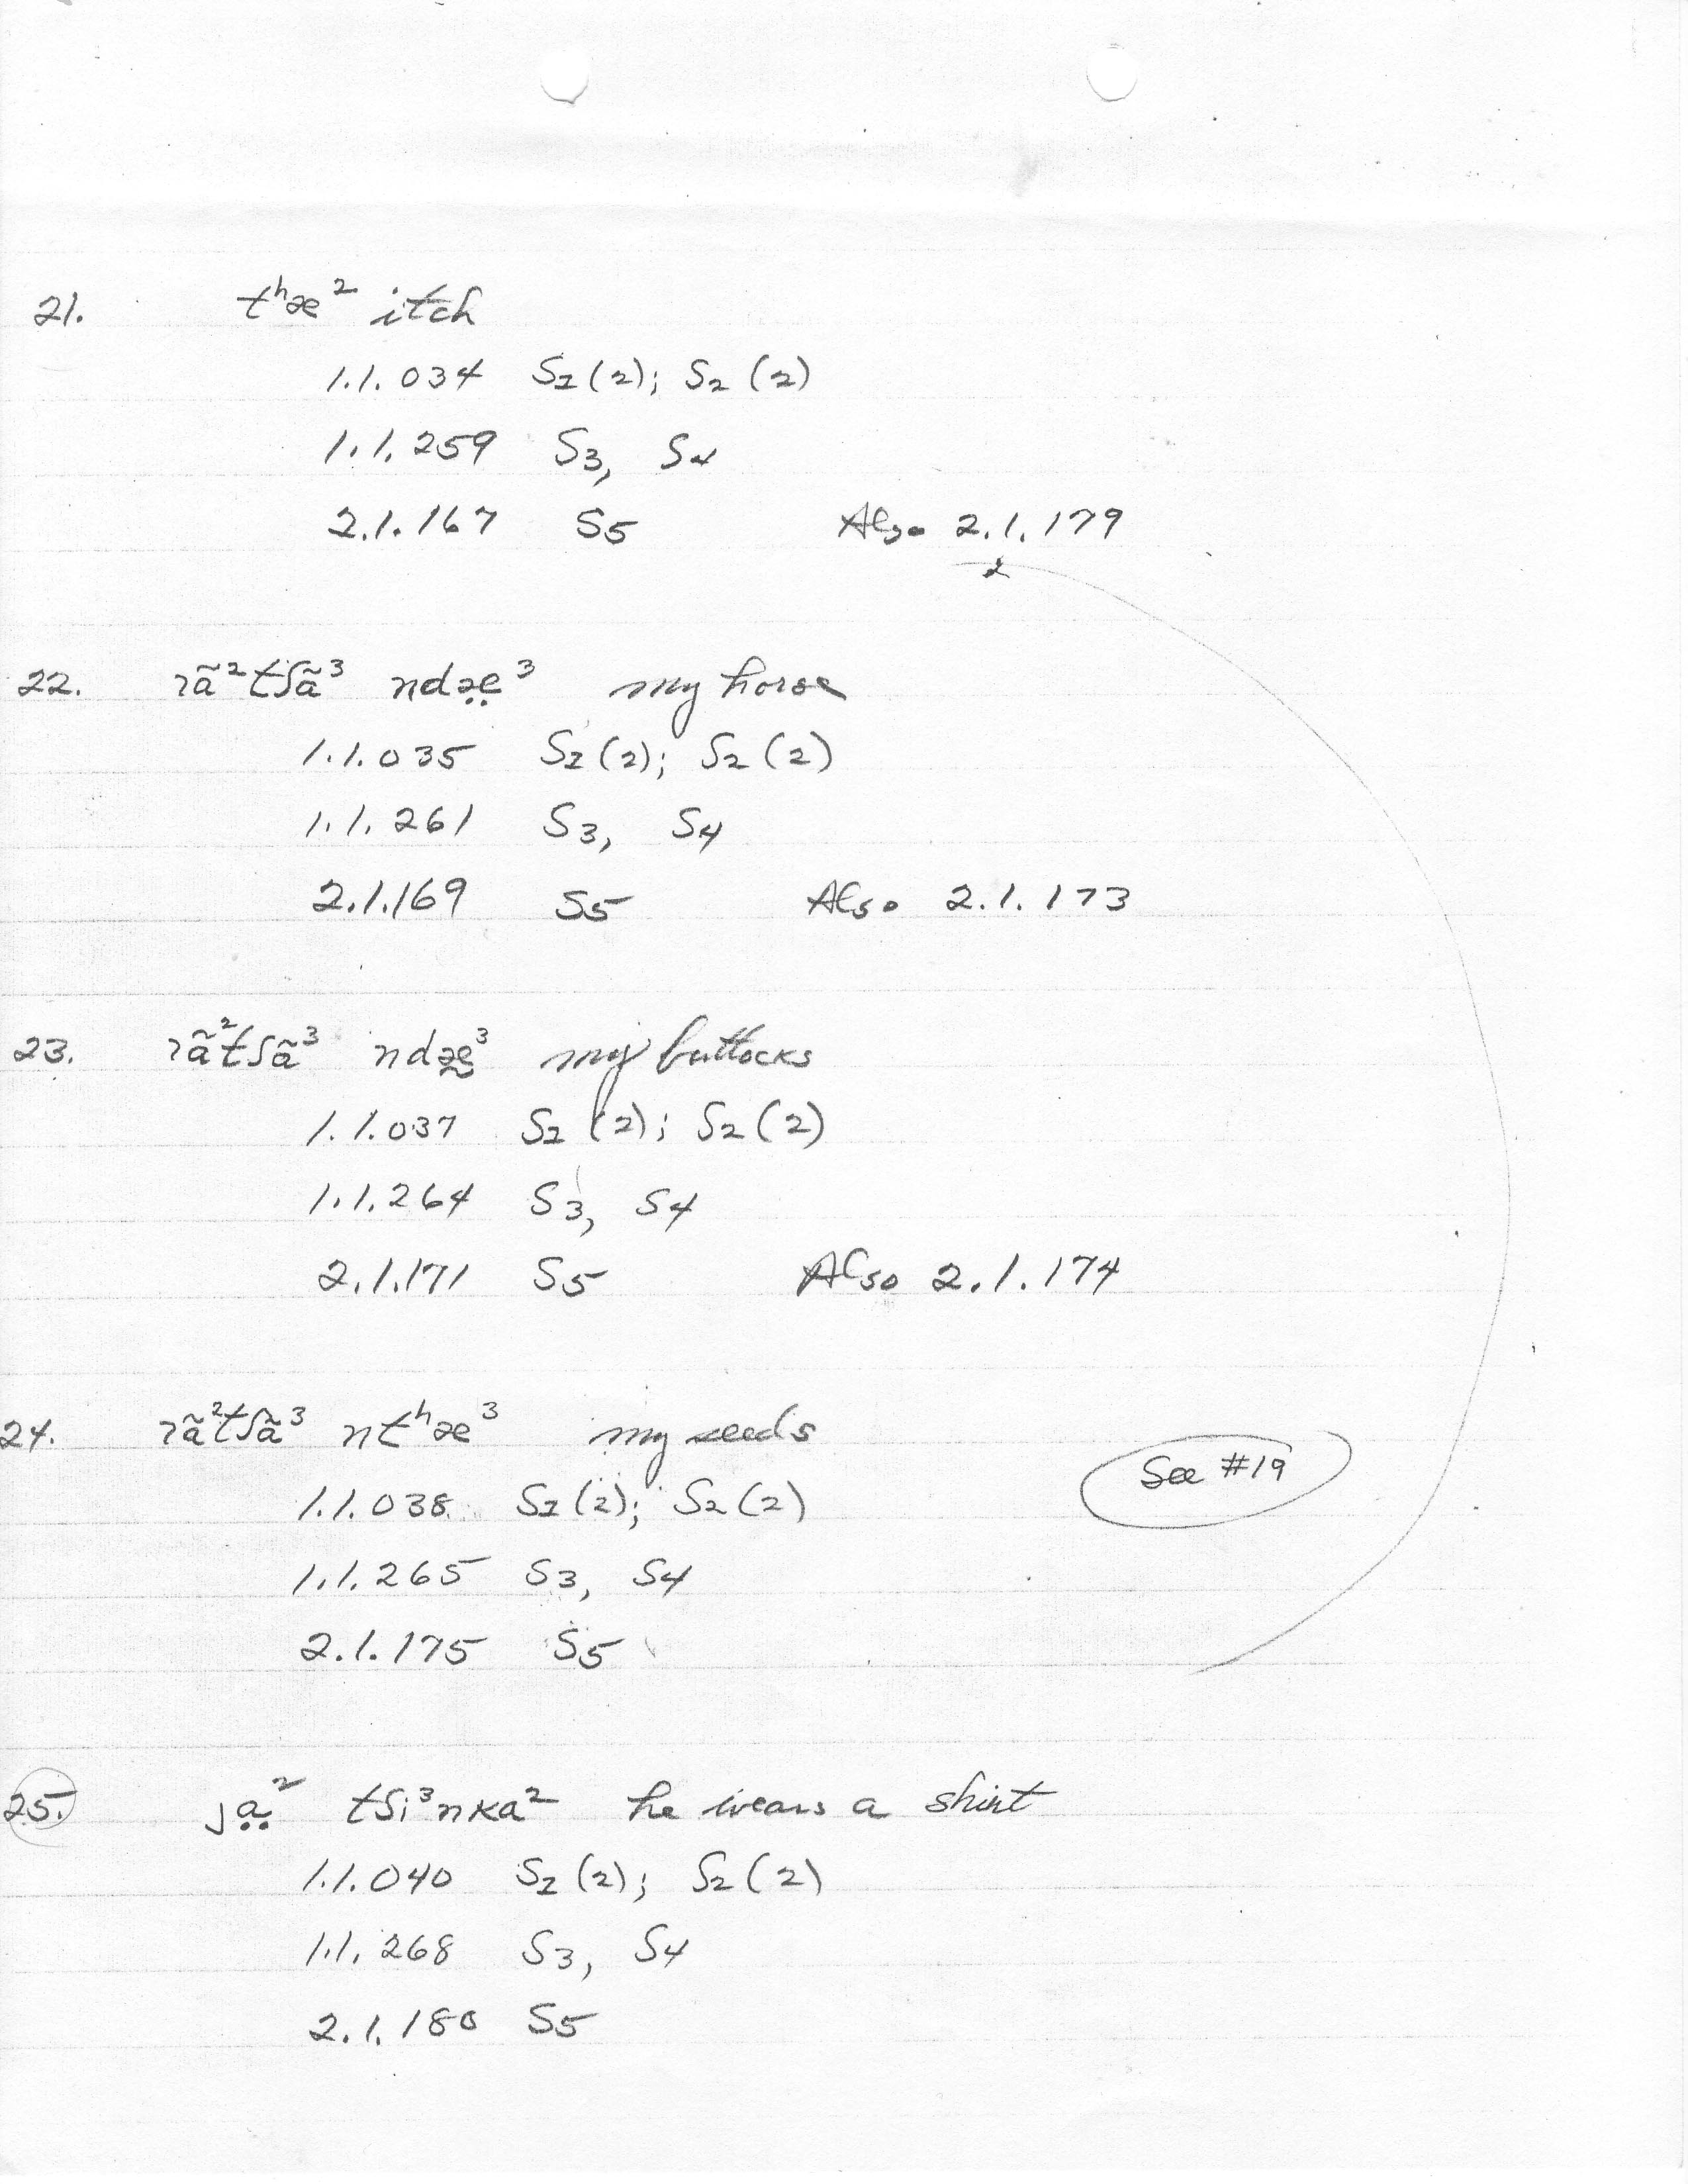 21. tʰæ² itch
1.1.034 S₁(2); S₂(2)
1.1.259 S₃, S₄
2.1.167 S5 Also 2.1.179
22. ɂã²tʃã³ ndæ̤³ my horse
1.1.035 S₁(2); S₂(2)
1.1.261 S₃, S₄
2.1.169 S5 Also 2.1.173
23. ɂã²tʃã³ ndæ̰³ my buttocks
1.1.037 S₁(2); S₂(2)
1.1.264 S₃, S₄
2.1.171 S5 Also 2.1.174
24. ɂã²tʃã³ ntʰæ³ my seeds
See #19
1.1.038 S₁(2); S₂(2)
1.1.265 S₃, S₄
2.1.175 S5
25. ja̤² tʃi³nka² he wears a shirt
1.1.040 S₁(2); S₂(2)
1.1.268 S₃, S₄
2.1.180 S5